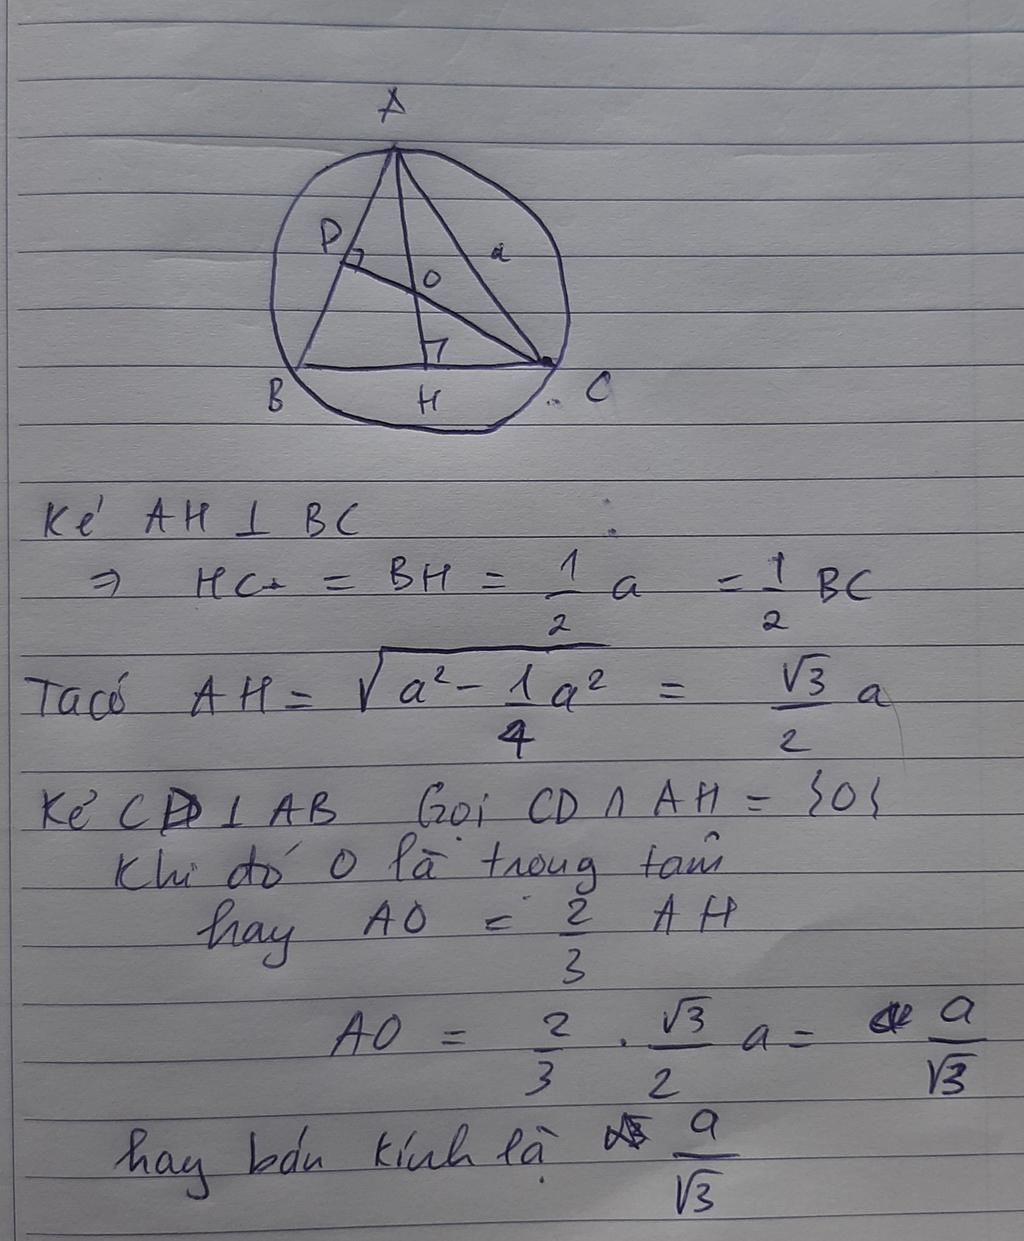 A
D
a
O
B
H
C
Kẻ AH ⊥ BC
⇒ HC = BH = 1/2 a = 1/2 BC
Ta có AH = √(a² - 1/4 a²) = √3/2 a
Kẻ CD ⊥ AB Gọi CD ∩ AH = {O}
Khi đó O là trọng tâm
hay AO = 2/3 AH
AO = 2/3 . √3/2 a = a/√3
hay bán kính là a/√3